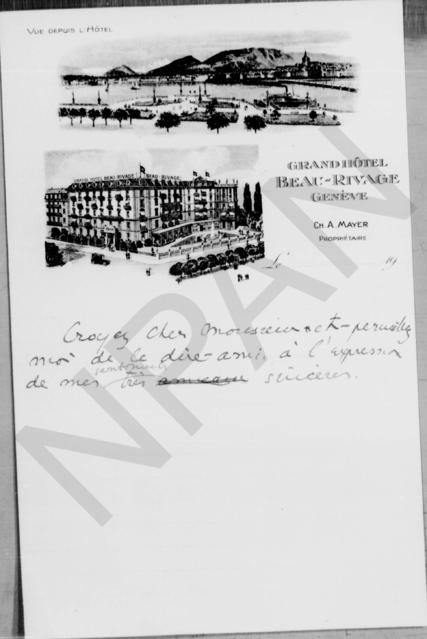 VUE DEPUIS L'HÔTEL
GRAND HÔTEL BEAU RIVAGE BEAU-RIVAGE
GRAND HÔTEL
BEAU-RIVAGE
GENÈVE
CH. A. MAYER
PROPRIÉTAIRE
Le 19
Croyez cher monsieur et permettez
moi de le dire ami, à l'expression
sentiments
de mes très sincères.
NPAN